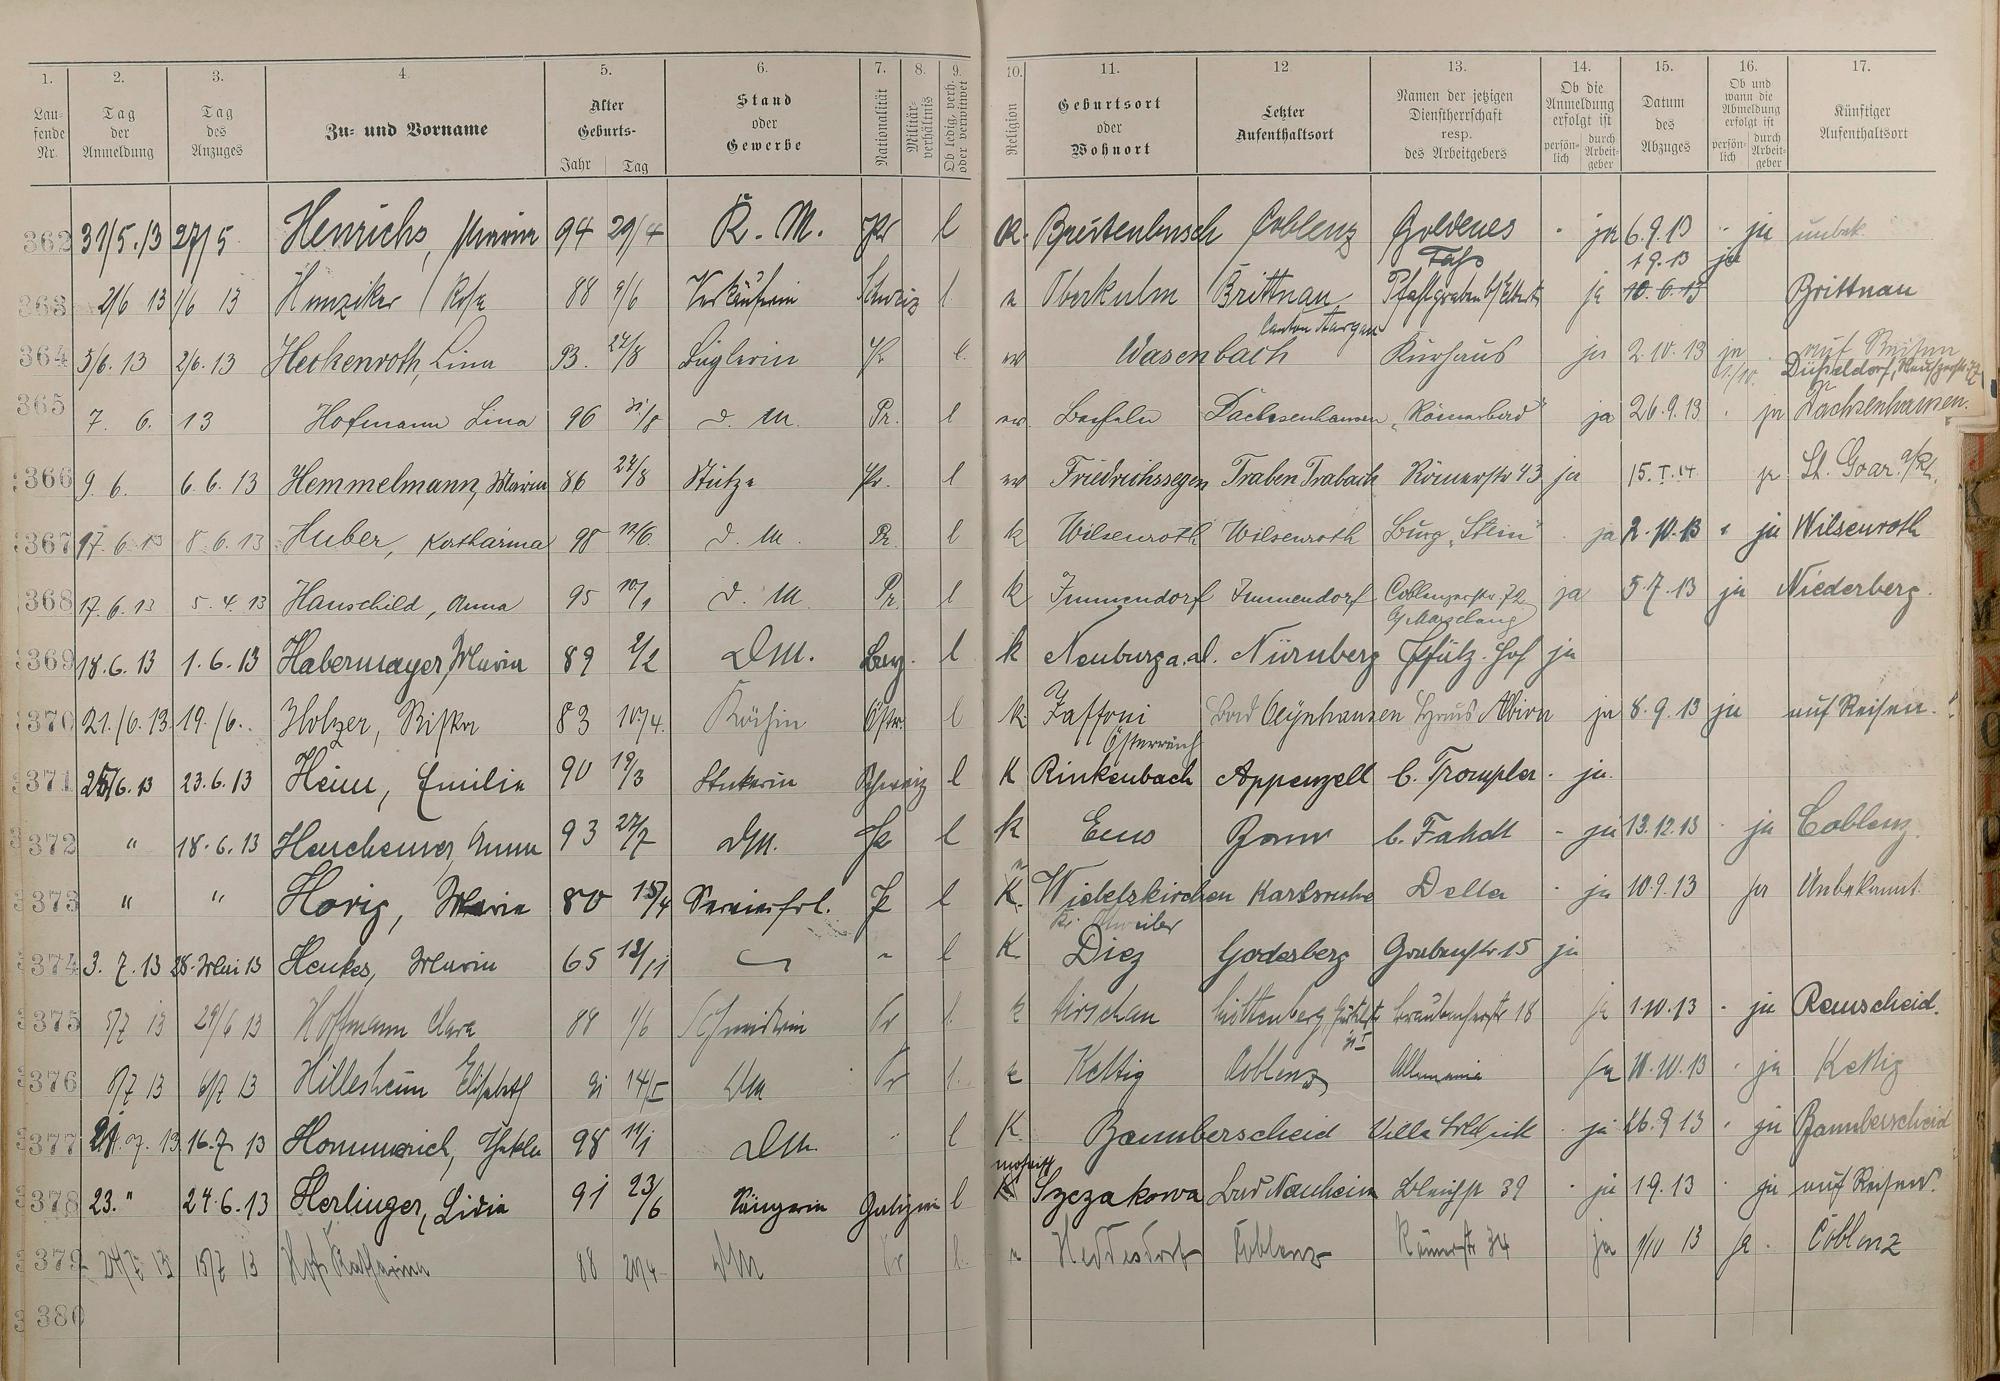 1. 2. 3. 4. 5. 6. 7. 8. 9. 10. 11. 12 13. 14. 15. 16. 17.
Lau-fende Nr. Tag der Anmeldung Tag des Anzuges Zu- und Vorname Alter Geburts- Jahr Tag Stand oder Gewerbe Nationalität Militär-verhältnis Ob ledig, verh. oder verwitwet Religion Geburtsort oder Wohnort Letzter Aufenthaltsort Namen der jetzigen Dienstherrschaft resp. des Arbeitgebers Ob die Anmeldung erfolgt ist persön-lich durch Arbeit-geber Datum des Abzuges Ob und wann die Abmeldung erfolgt ist persön-lich durch Arbeit-geber Künftiger Aufenthaltsort
362 31/5.13 27/5 Henrichs, Maria 94 29/4 K. M. Pr l K. Coblenz Goldenes Fass ja 6.9.13 ja unbek.
363 2/6 13 1/6 13 Hunziker Rosa 88 9/6 Verkäuferin Schweiz l Oberkulm Brittnau Canton Aargau ja 10.6.13 1 9.13 ja Brittnau
364 5/6.13 2/6.13 Heckenroth, Lina 93. 24/8 Büglerin Pr. l. ev Wasenbach Kurhaus ja 2.10.13 ja 1/10. auf Reisen Düsseldorf
365 7. 6. 13 Hofmann Lina 96 31/8 d. M. Pr. l ev Dachsenhausen "Römerbad" ja 26.9.13 ja Dachsenhausen.
366 9.6. 6.6.13 Hemmelmann, Maria 86 24/8 Stütze Pr. l ev Friedrichssegen Traben Trabach Römerstr 43 ja 15.I.14 ja St. Goar a/Rh.
367 17.6.13 8.6.13 Huber, Katharina 98 12/6. d. M. Pr. l k Wilsenroth Wilsenroth Burg "Stein" ja 2.10.13 ja Wilsenroth
368 17.6.13 5.4.13 Hauschild, Anna 95 10/1 d. M. Pr. l k Immendorf Immendorf Coblenzerstr. 72 ja 5.7.13 ja Niederberg.
369 18.6.13 1.6.13 Habermayer, Maria 89 2/2 DM. Bay. l k Neuburg a.d. Nürnberg Pfälz. Hof ja
370 21./6.13 19./6. Holzer, 83 10./4. Köchin Östr. l k. Österreich Bad Oeÿnhausen Haus Albion ja 8.9.13 ja auf Reisen.
371 25/6.13 23.6.13 Heim, Emilie 90 19/3 Stickerin Schweiz l K Rinkenbach Appenzell b. Trompler ja.
372 " 18.6.13 Anna 93 27/7 DM. Pr l k Ems Bonn b. Fahdt ja 13.12.13 ja Coblenz.
373 " " Horig, Marie 80 15/4 Servierfrl. Pr l K. Wiebelskirchen Karlsruhe Della ja 10.9.13 ja Unbekannt
374 3.7.13 28. Mai 13 Henkes, Maria 65 12/11 " l K Diez Godesberg Grabenstr 15 ja
375 5/7 13 29/6 13 Hoffmann Clara 88 1/6 Pr l. 18 ja 1.10.13 ja Remscheid.
376 8/7 13 6/7 13 Hillesheim Elisabeth 91 14/5 DM Pr l. Kettig Coblenz Allemania ja 10.10.13 ja Kettig
377 21.07.13 16.7 13 Hommerich, Thekla 98 11/1 DM. l K Bannberscheid Villa ja 26.9 13 ja Bannberscheid
378 23." 24.6.13 Herlinger, Lidia 91 23/6 Sängerin Galizien l mosaisch Szczakowa Bad Nauheim Bleichstr 39 ja 1 9.13 ja auf Reisen.
379 24/7 13 15/7 13 Hof Katharina 88 20/4 DM Pr l. Heddesdorf Coblenz Römerstr 34 ja 1/10 13 ja. Coblenz
380